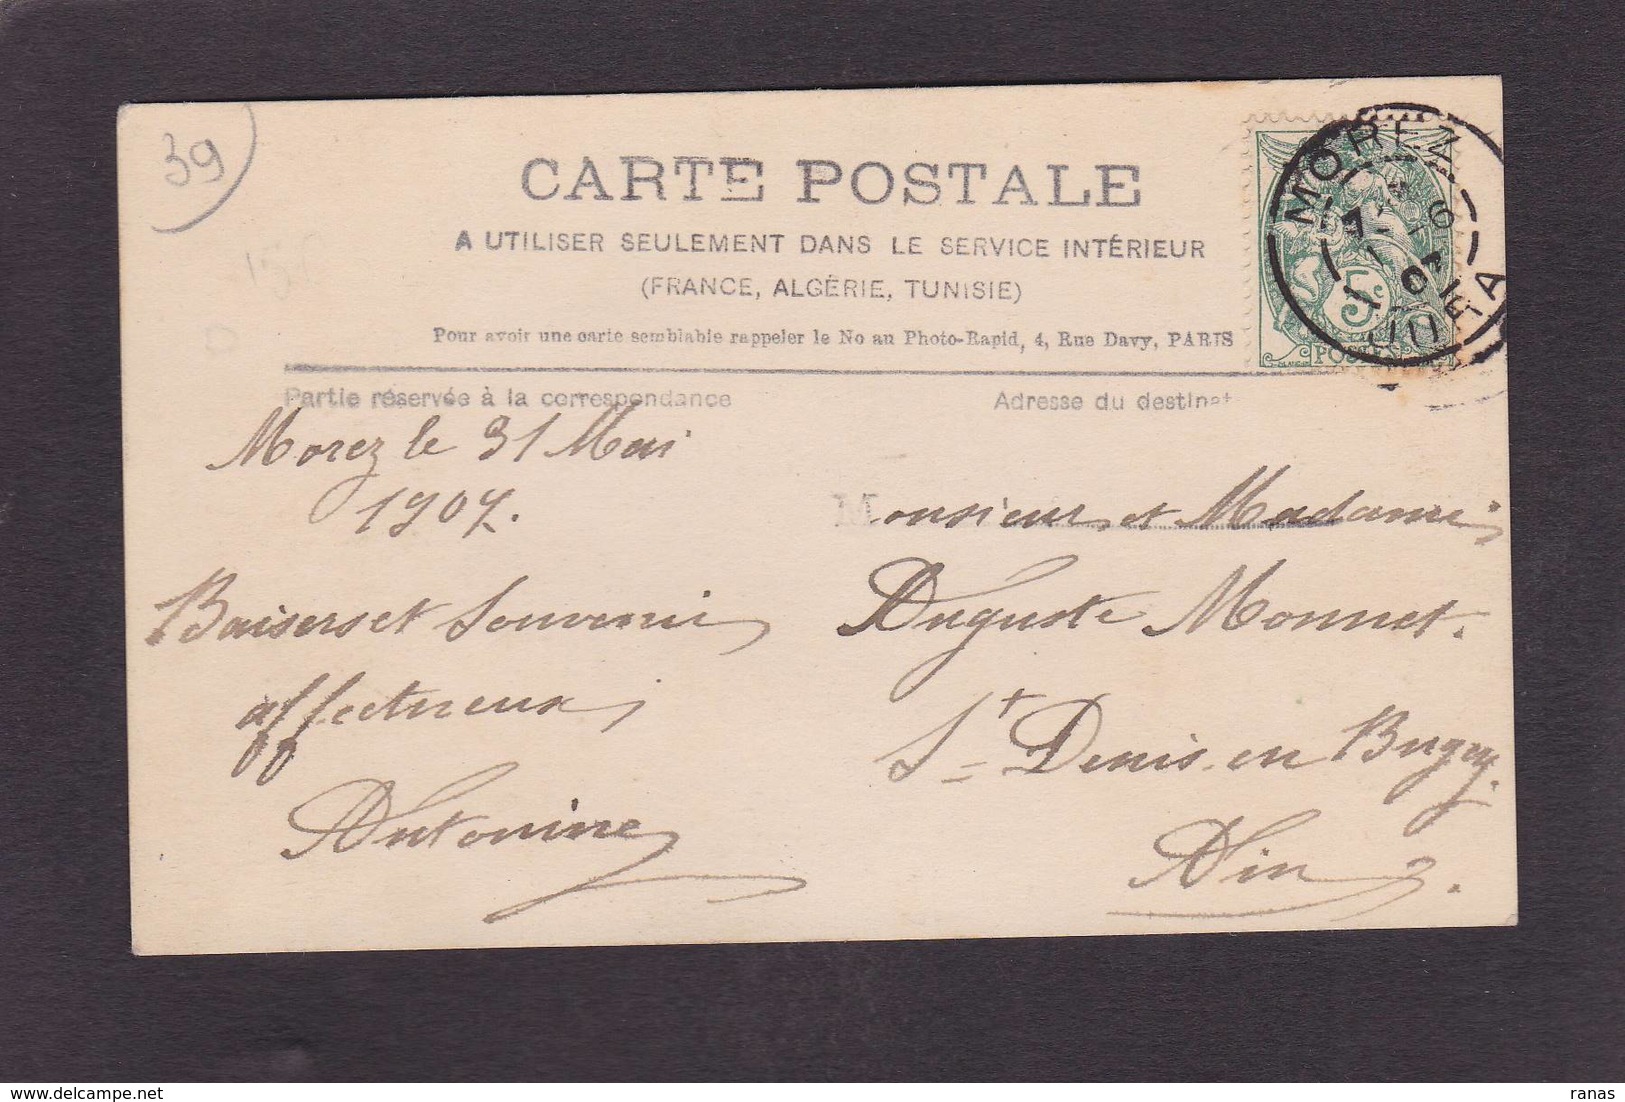 39
CARTE POSTALE
A UTILISER SEULEMENT DANS LE SERVICE INTÉRIEUR
(FRANCE, ALGÉRIE, TUNISIE)
Pour avoir une carte semblable rappeler le No au Photo-Rapid, 4, Rue Davy, PARIS
MOREZ
5
POSTES
Partie réservée à la correspondance
Adresse du destinat
Morez le 31 Mai
1907.
Baisers et Souvenir
affectueux
Antonine
Monsieur et Madame
Auguste Monnet.
St Denis en Bugey.
Ain
ranas